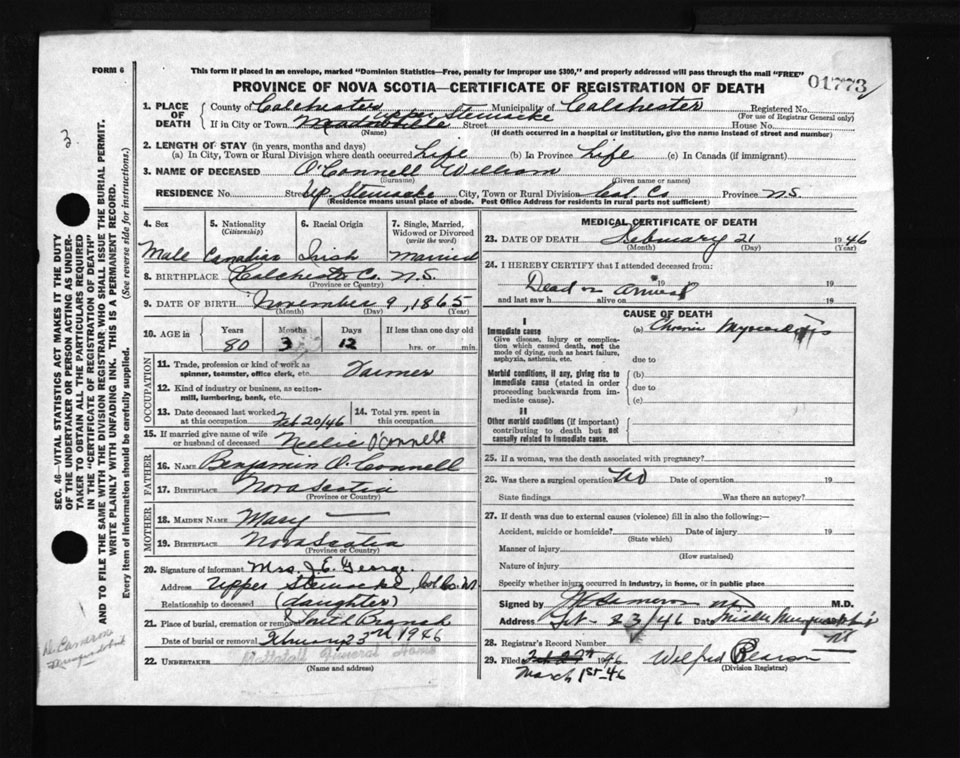 FORM 6
This form if placed in an envelope, marked "Dominion Statistics—Free, penalty for improper use $300," and properly addressed will pass through the mail "FREE"
01773
PROVINCE OF NOVA SCOTIA—CERTIFICATE OF REGISTRATION OF DEATH
1. PLACE OF DEATH
County of Colchester Municipality of Colchester Registered No.
(For use of Registrar General only)
If in City or Town Upper Stewiacke Street House No.
(Name) (If death occurred in a hospital or institution, give the name instead of street and number)
2. LENGTH OF STAY (in years, months and days)
(a) In City, Town or Rural Division where death occurred Life (b) In Province Life (c) In Canada (if immigrant)
3. NAME OF DECEASED O'Connell William
(Surname) (Given name or names)
RESIDENCE No. Street Up. Stewiacke City, Town or Rural Division Col. Co. Province N.S.
(Residence means usual place of abode. Post Office Address for residents in rural parts not sufficient)
4. Sex Male
5. Nationality (Citizenship) Canadian
6. Racial Origin Irish
7. Single, Married, Widowed or Divorced (write the word) Married
8. BIRTHPLACE Colchester Co. N.S.
(Province or Country)
9. DATE OF BIRTH November 9, 1865
(Month) (Day) (Year)
10. AGE in Years Months Days If less than one day old
80 3 12 hrs. or min.
OCCUPATION
11. Trade, profession or kind of work as spinner, teamster, office clerk, etc. Farmer
12. Kind of industry or business, as cotton-mill, lumbering, bank, etc.
13. Date deceased last worked at this occupation Feb 20/46
14. Total yrs. spent in this occupation
15. If married give name of wife or husband of deceased Nellie O'Connell
FATHER
16. NAME Benjamin O'Connell
17. BIRTHPLACE Nova Scotia
(Province or Country)
MOTHER
18. MAIDEN NAME Mary —
19. BIRTHPLACE Nova Scotia
(Province or Country)
20. Signature of informant Mrs. J. E. George
Address Upper Stewiacke, Col. Co. N.S.
Relationship to deceased (daughter)
21. Place of burial, cremation or removal South Branch
Date of burial or removal February 23rd 1946
22. UNDERTAKER Funeral Home
(Name and address)
MEDICAL CERTIFICATE OF DEATH
23. DATE OF DEATH February 21 1946
(Month) (Day) (Year)
24. I HEREBY CERTIFY that I attended deceased from:
19
Dead on arrival 19
and last saw h alive on 19
CAUSE OF DEATH
I
Immediate cause
Give disease, injury or complication which caused death, not the mode of dying, such as heart failure, asphyxia, asthenia, etc.
(a) Chronic Myocarditis
due to
Morbid conditions, if any, giving rise to immediate cause (stated in order proceeding backwards from immediate cause).
(b)
due to
(c)
II
Other morbid conditions (if important) contributing to death but not causally related to immediate cause.
25. If a woman, was the death associated with pregnancy?
26. Was there a surgical operation? No Date of operation 19
State findings Was there an autopsy?
27. If death was due to external causes (violence) fill in also the following:—
Accident, suicide or homicide? Date of injury 19
(State which)
Manner of injury
(How sustained)
Nature of injury
Specify whether injury occurred in industry, in home, or in public place
Signed by M.D.
Address Feb - 23/46 Date Middle Musquodoboit
28. Registrar's Record Number
29. Filed Feb 27th 1946 Wilfred Pearson
March 1st - 46 (Division Registrar)
SEC. 46—VITAL STATISTICS ACT MAKES IT THE DUTY OF THE UNDERTAKER OR PERSON ACTING AS UNDERTAKER TO OBTAIN ALL THE PARTICULARS REQUIRED IN THE "CERTIFICATE OF REGISTRATION OF DEATH" AND TO FILE THE SAME WITH THE DIVISION REGISTRAR WHO SHALL ISSUE THE BURIAL PERMIT.
WRITE PLAINLY WITH UNFADING INK. THIS IS A PERMANENT RECORD.
Every item of information should be carefully supplied. (See reverse side for instructions.)